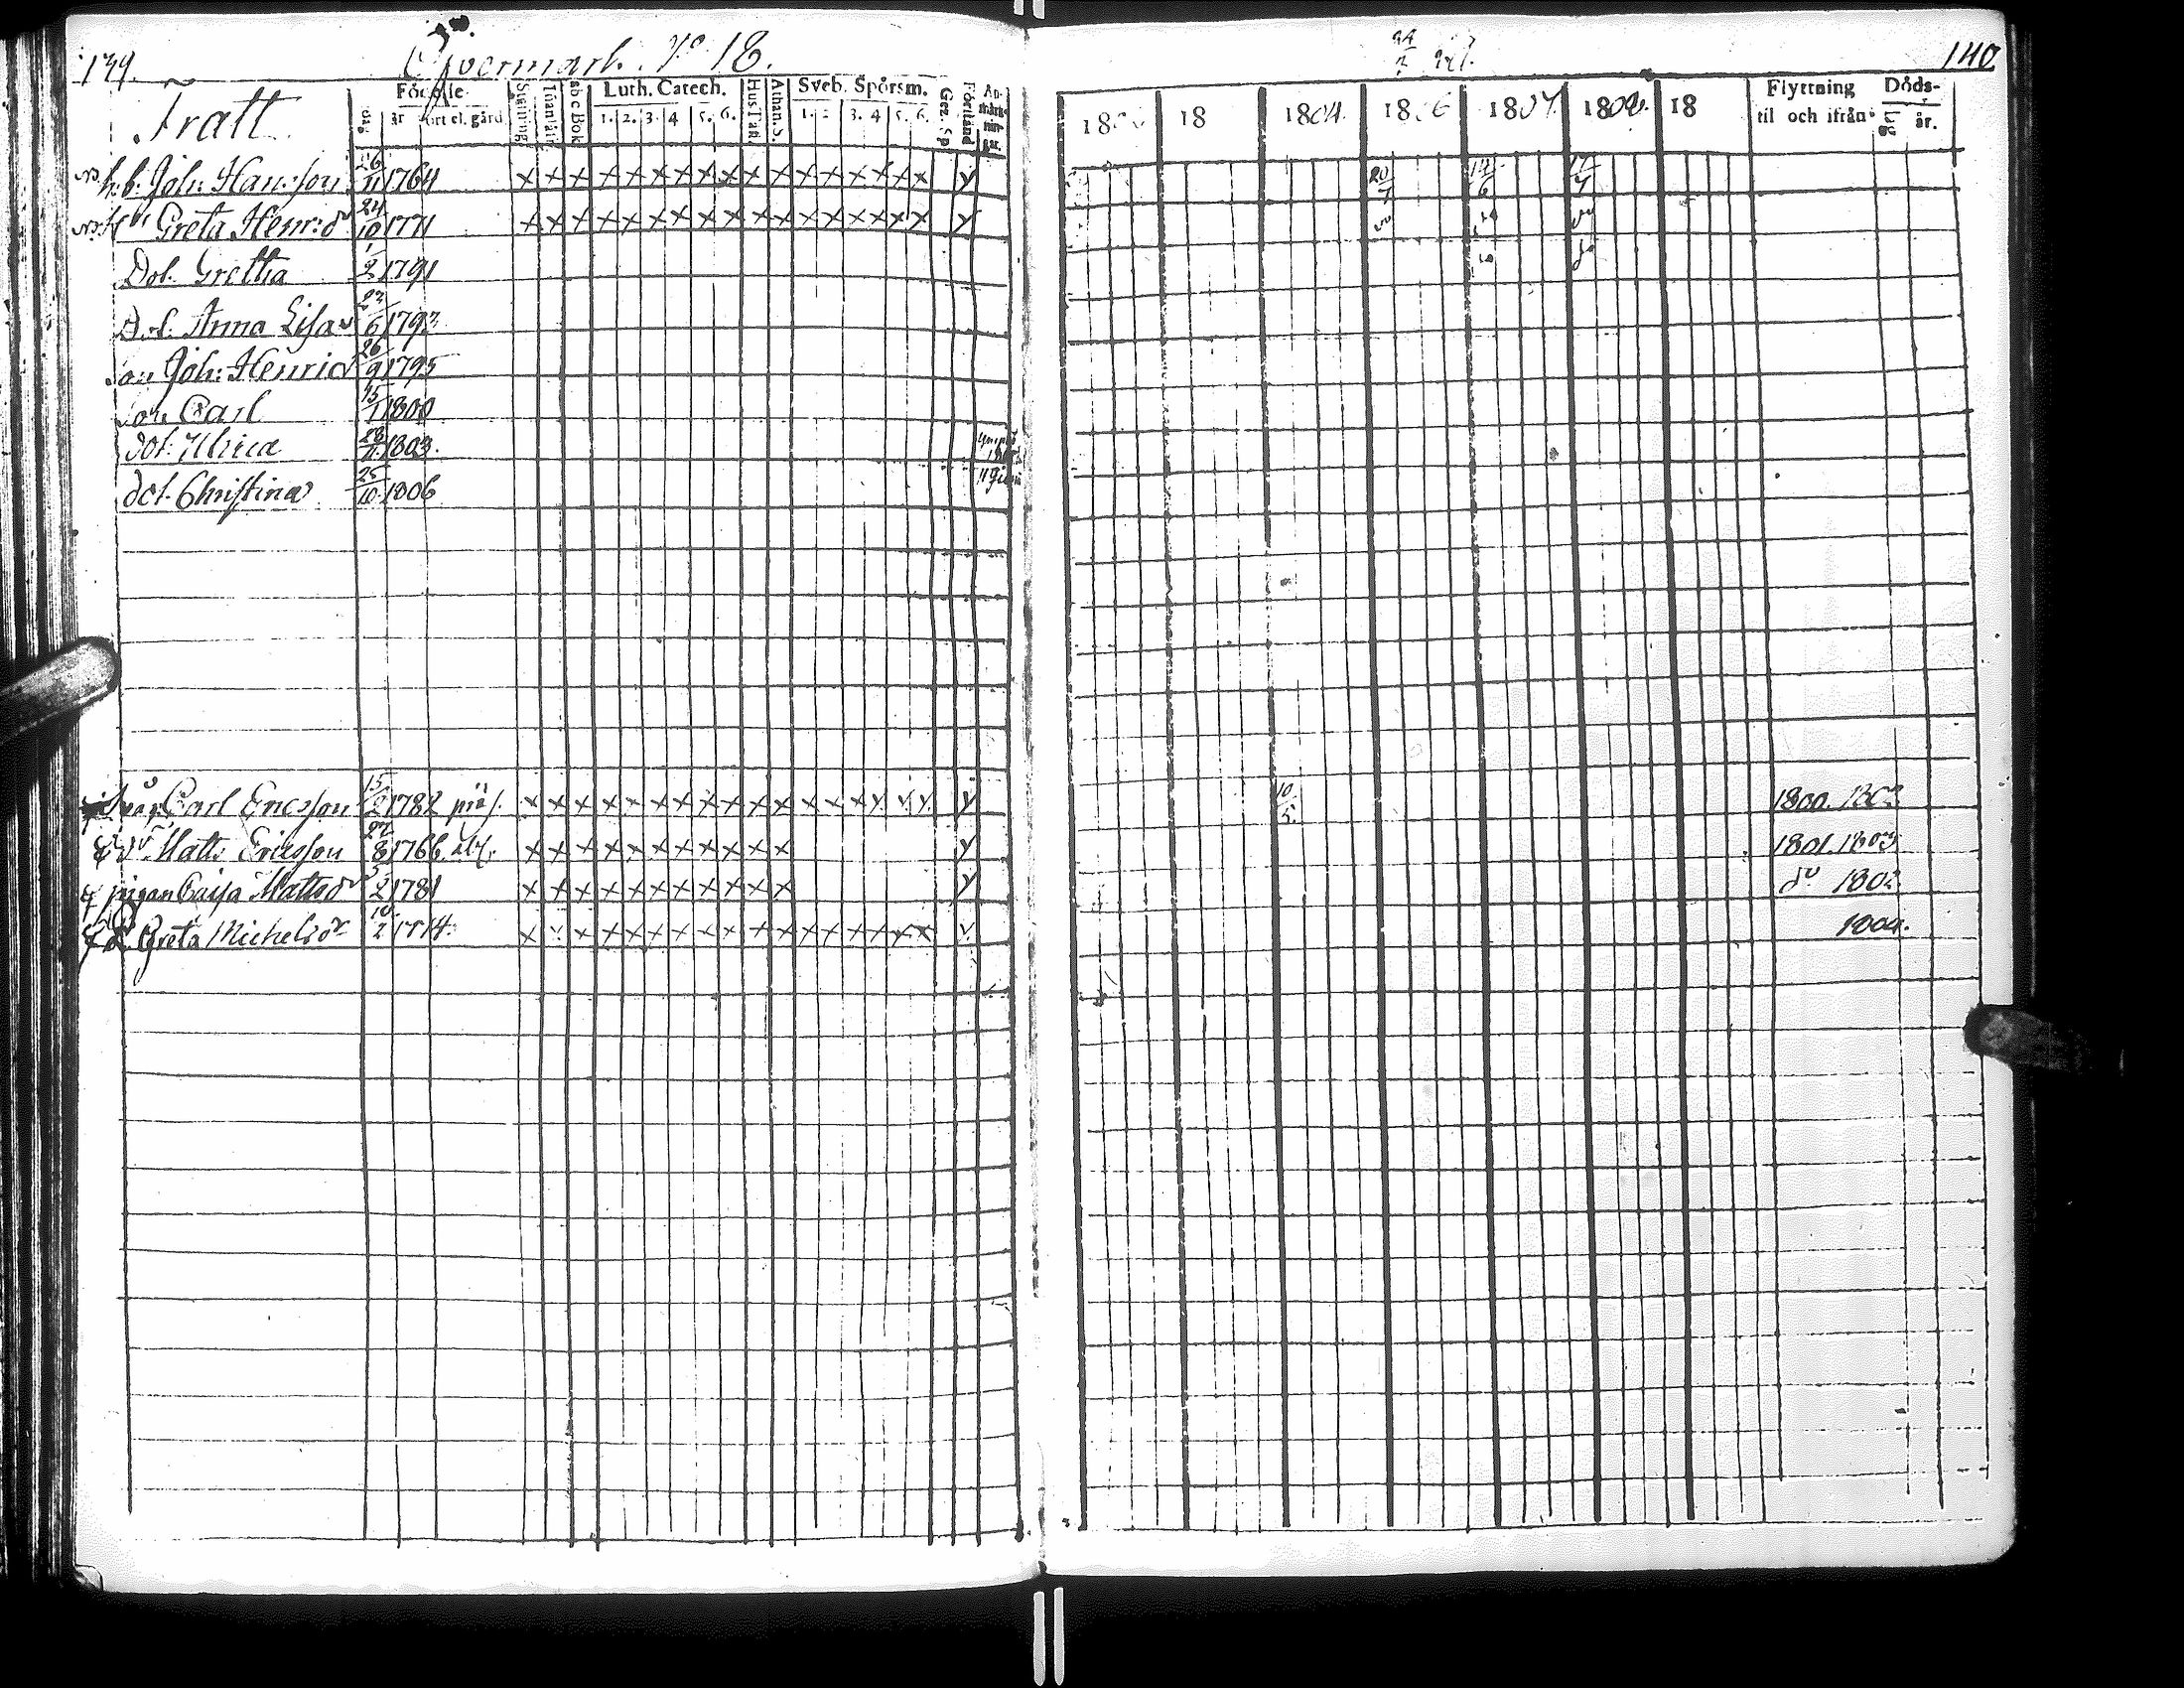 139.
Öfvermark. No 18.
Tratt
Födelse
dag år ort el. gård
Stafning
abc Bok
Luth. Catech.
1. 2. 3. 4 5. 6.
Hus Taf.
Athan. S.
Sveb. Spörsm.
1. 2 3. 4 5. 6.
Gez. Sp
Förstånd
An-
märk-
nin-
gar.
h.b. Joh: Hansson 26/11 1764 x x x x x x x x x x x x x x x x x y
Hu Greta Henr: dr 24/10 1771 x x x x x x x x x x x x x x x x x y
Dot. Gretha 1/2 1791
Dot. Anna Lisa 6 1793
Son Joh: Henric 26/9 1795
Son Carl 15/1 1800
dot. Ulrica 1803.
dot. Christina 25/10 1806
Carl Ericsson 15/2 1782 x x x x x x x x x x x x x x y y y y
Matts Ericsson 27/8 1766 x x x x x x x x x x x y
pigan Caisa Mattsdr 2 1781 x x x x x x x x x x x y
Greta Michelsdr 10/2 x v x x x x x x x x x x x x x x x v
140
18 18 1804. 1806 1807. 1808. 18
Flyttning
til och ifrån
Döds-
dag år.
20/7 14/6
do
10/5.
1800. 1803
1801. 1803
do 1803
1804.